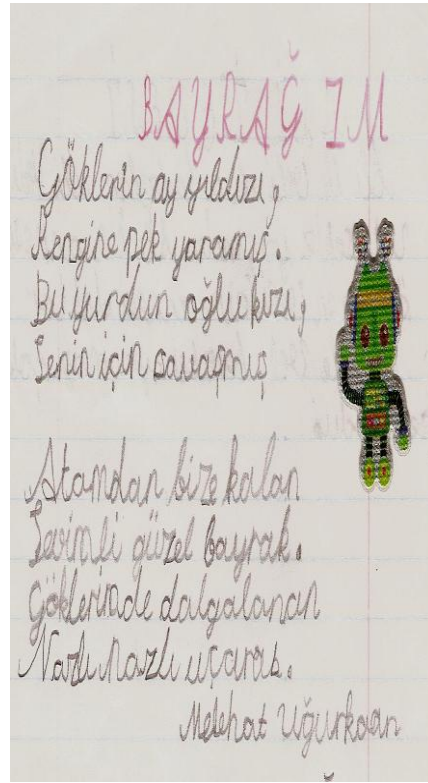 BAYRAĞIM
Göklerin ay yıldızı,
Rengine pek yaramış.
Bu yurdun oğlu kızı,
Senin için savaşmış
Atamdan bize kalan
Sevimli güzel bayrak.
Göklerimde dalgalanan
Nazlı nazlı uçarak.
Melehat Uğurkaan